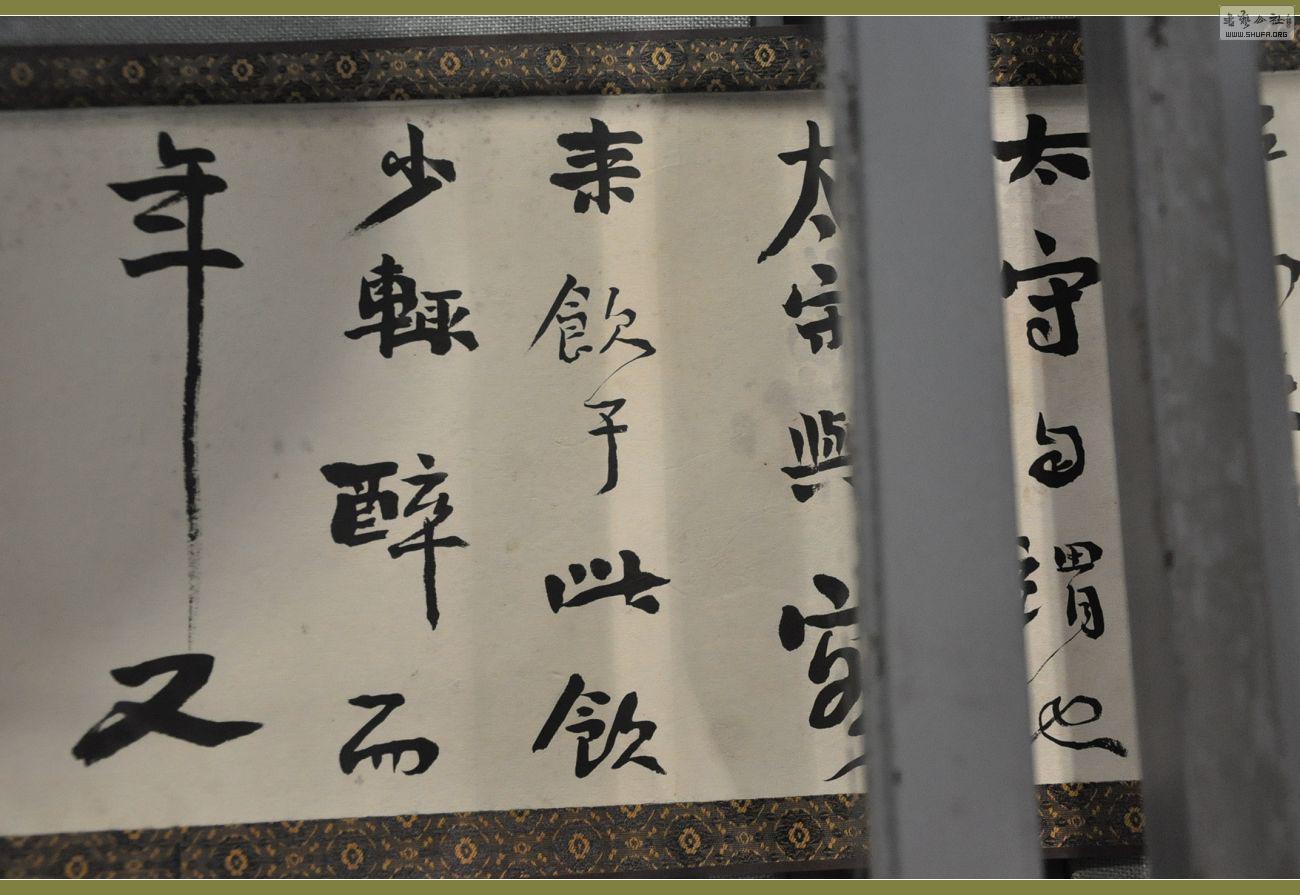 太守自謂也
太守與客
来飲于此飲
少輒醉而
年又
書藝公社
WWW.SHUFA.ORG